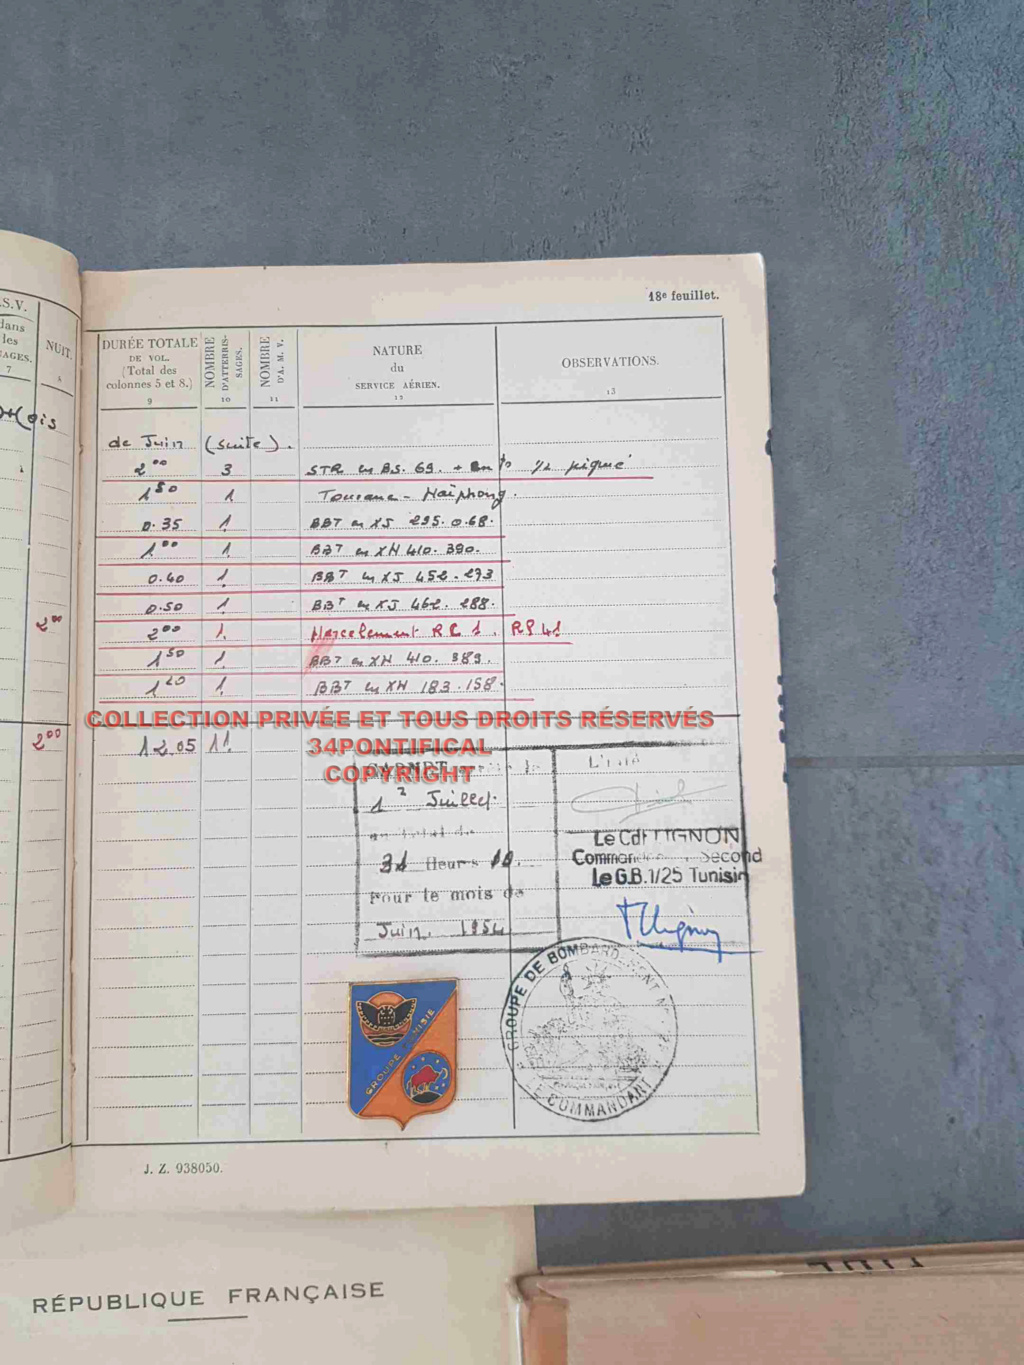 18e feuillet.
S.V.
dans
les
AGES.
7
NUIT.
8
DURÉE TOTALE
DE VOL.
(Total des
colonnes 5 et 8.)
9
NOMBRE
D'ATTERRIS-
SAGES.
10
NOMBRE
D'A. M. V.
11
NATURE
du
SERVICE AÉRIEN.
12
OBSERVATIONS.
13
de Juin (suite).
2 00 3 STR en BS. 69. + 1/2 piqué
1 50 1 Tourane - Haïphong.
0.35 1. BBT en XJ 295.068.
1 00 1. BBT en XH 410.390.
0.40 1. BBT en XJ 452.273
0.50 1. BBT en XJ 462.288.
2 00
2 00 1. Harcelement RC 1. RP 41
1 50 1. BBT en XH 410.389.
1 20 1. BBT en XH 183.158.
COLLECTION PRIVÉE ET TOUS DROITS RÉSERVÉS
2 00
12.05 11
34PONTIFICAL
COPYRIGHT
CARNET
1 Juillet
31 Heures 10.
Pour le mois de
Juin 1954
Le Cdt TIGNON
Commandant Second
Le G.B. 1/25 Tunisie
GROUPE DE BOMBARDEMENT
LE COMMANDANT
GROUPE TUNISIE
J. Z. 938050.
RÉPUBLIQUE FRANÇAISE